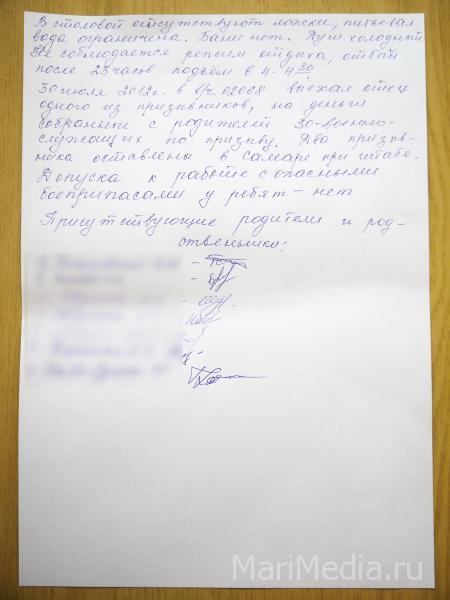 В столовой отсутствуют ложки, питьевая
вода ограничина. Бани нет. Душ холодный.
Не соблюдается режим отдыха, отбой
после 23 часов подъём в 4-4 30
30 июля 2012г. в в/ч 02068 выехал отец
одного из призывников, на деньги
собранные с родителей 30-военно-
служащих по призыву. Два призыв-
ника оставлены в Самаре при штабе.
Допуска к работе с опасными
боеприпасами у ребят - нет.
Присутствующие родители и род-
ственники:
MariMedia.ru